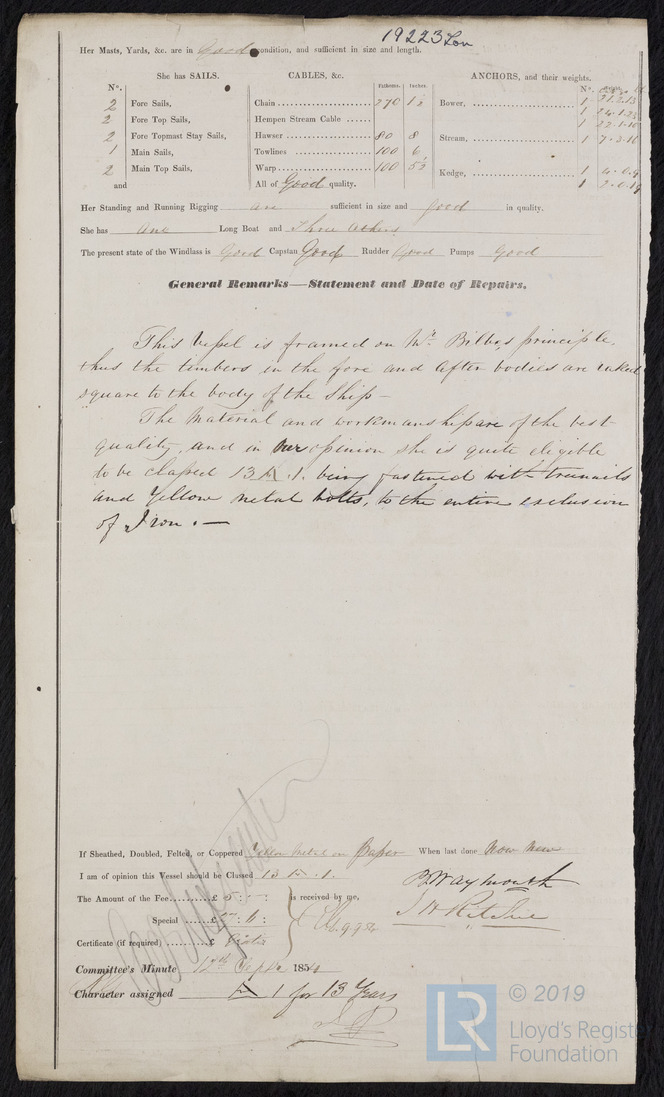 19223 Lon
Her Masts, Yards, &c. are in Good condition, and sufficient in size and length.
She has SAILS.
N°.
2 Fore Sails,
2 Fore Top Sails,
2 Fore Topmast Stay Sails,
1 Main Sails,
2 Main Top Sails,
and
CABLES, &c.
Fathoms. Inches.
Chain 270
Hempen Stream Cable
Hawser 80 8
Towlines 100 6
Warp 100 5½
All of Good quality.
ANCHORS, and their weights.
N°.
Bower, 1
1
1
Stream, 1
Kedge, 1
1
Her Standing and Running Rigging are sufficient in size and good in quality.
She has one Long Boat and Three others
The present state of the Windlass is Good Capstan Good Rudder Good Pumps Good
General Remarks—Statement and Date of Repairs.
This Vessel is framed on Mr. Bilbe's principle,
thus the timbers in the fore and after bodies are raked
square to the body of the Ship—
The Material and workmanship are of the best
quality, and in our opinion she is quite eligible
to be classed 13 A .1. being fastened with trenails
and Yellow metal bolts, to the entire exclusion
of Iron.—
If Sheathed, Doubled, Felted, or Coppered Yellow Metal on Paper When last done Now New
I am of opinion this Vessel should be Classed 13 A .1.
The Amount of the Fee £ 5 : - : is received by me,
Special £
Certificate (if required) £ Gratis
B Waymouth
J H Ritchie
Committee's Minute 12th Septr 185
Character assigned A 1 for 13 Years
LR © 2019
Lloyd's Register
Foundation